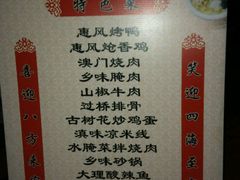 特色菜
惠风烤鸭
惠风炝香鸡
澳门烧肉
乡味腌肉
山椒牛肉
过桥排骨
古树花炒鸡蛋
滇味凉米线
水腌菜拌烧肉
乡味砂锅
大理酸辣鱼
喜迎八方来
笑迎四海至